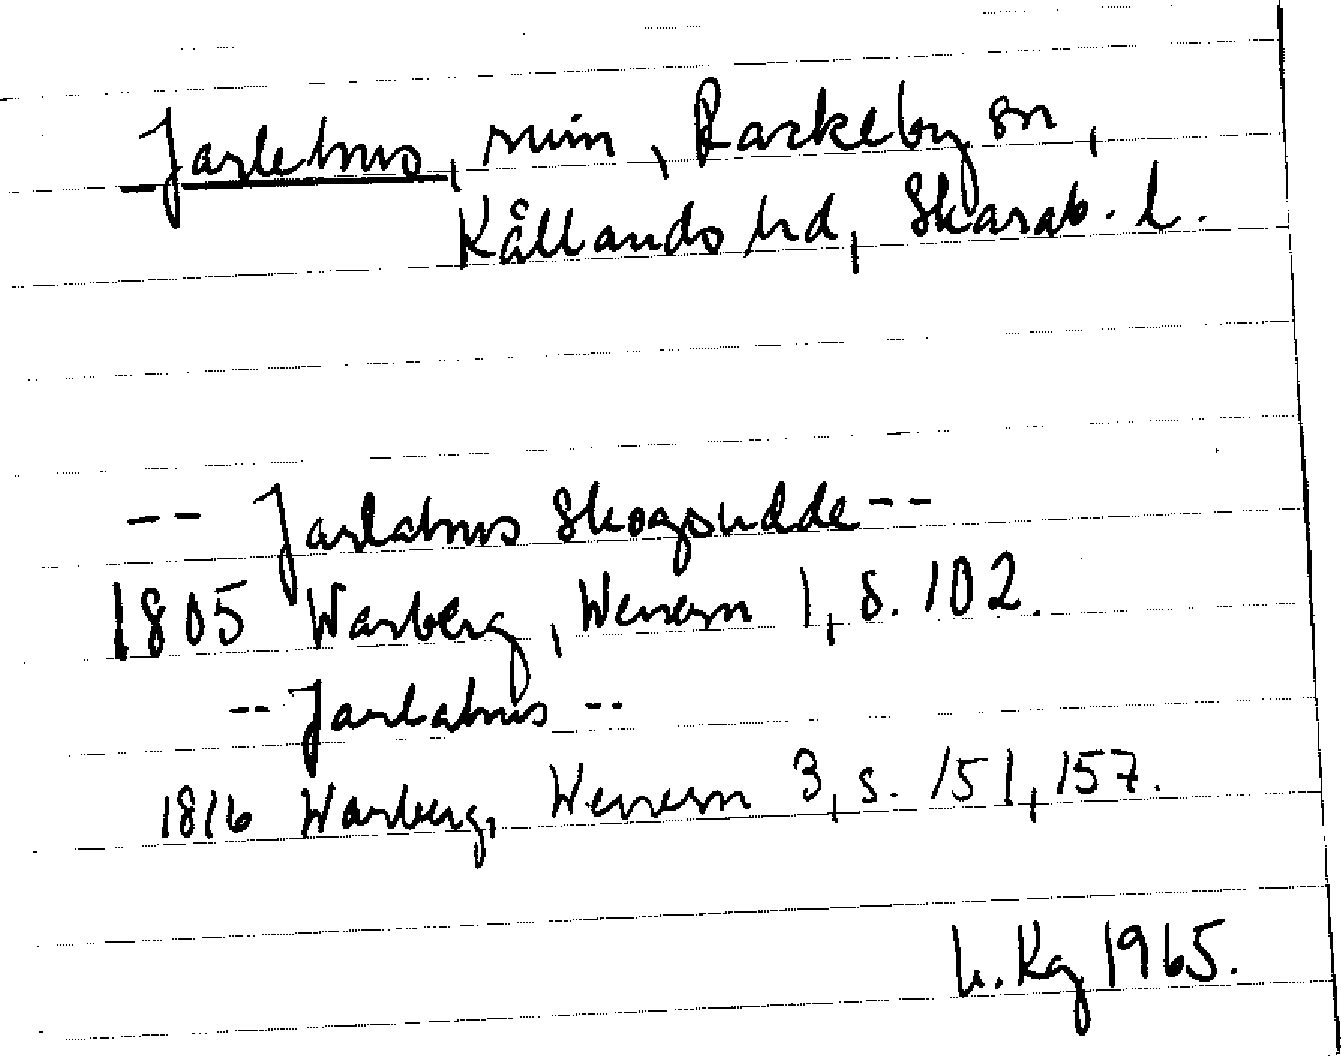 Jarlehus, ruin, Rackeby sn,
Kållands hd, Skarab. l.
-- Jarlahus Skogsudde --
1805 Warberg, Wenern 1, s. 102.
-- Jarlahus --
1816 Warberg, Wenern 3, s. 151, 157.
L. Kg 1965.